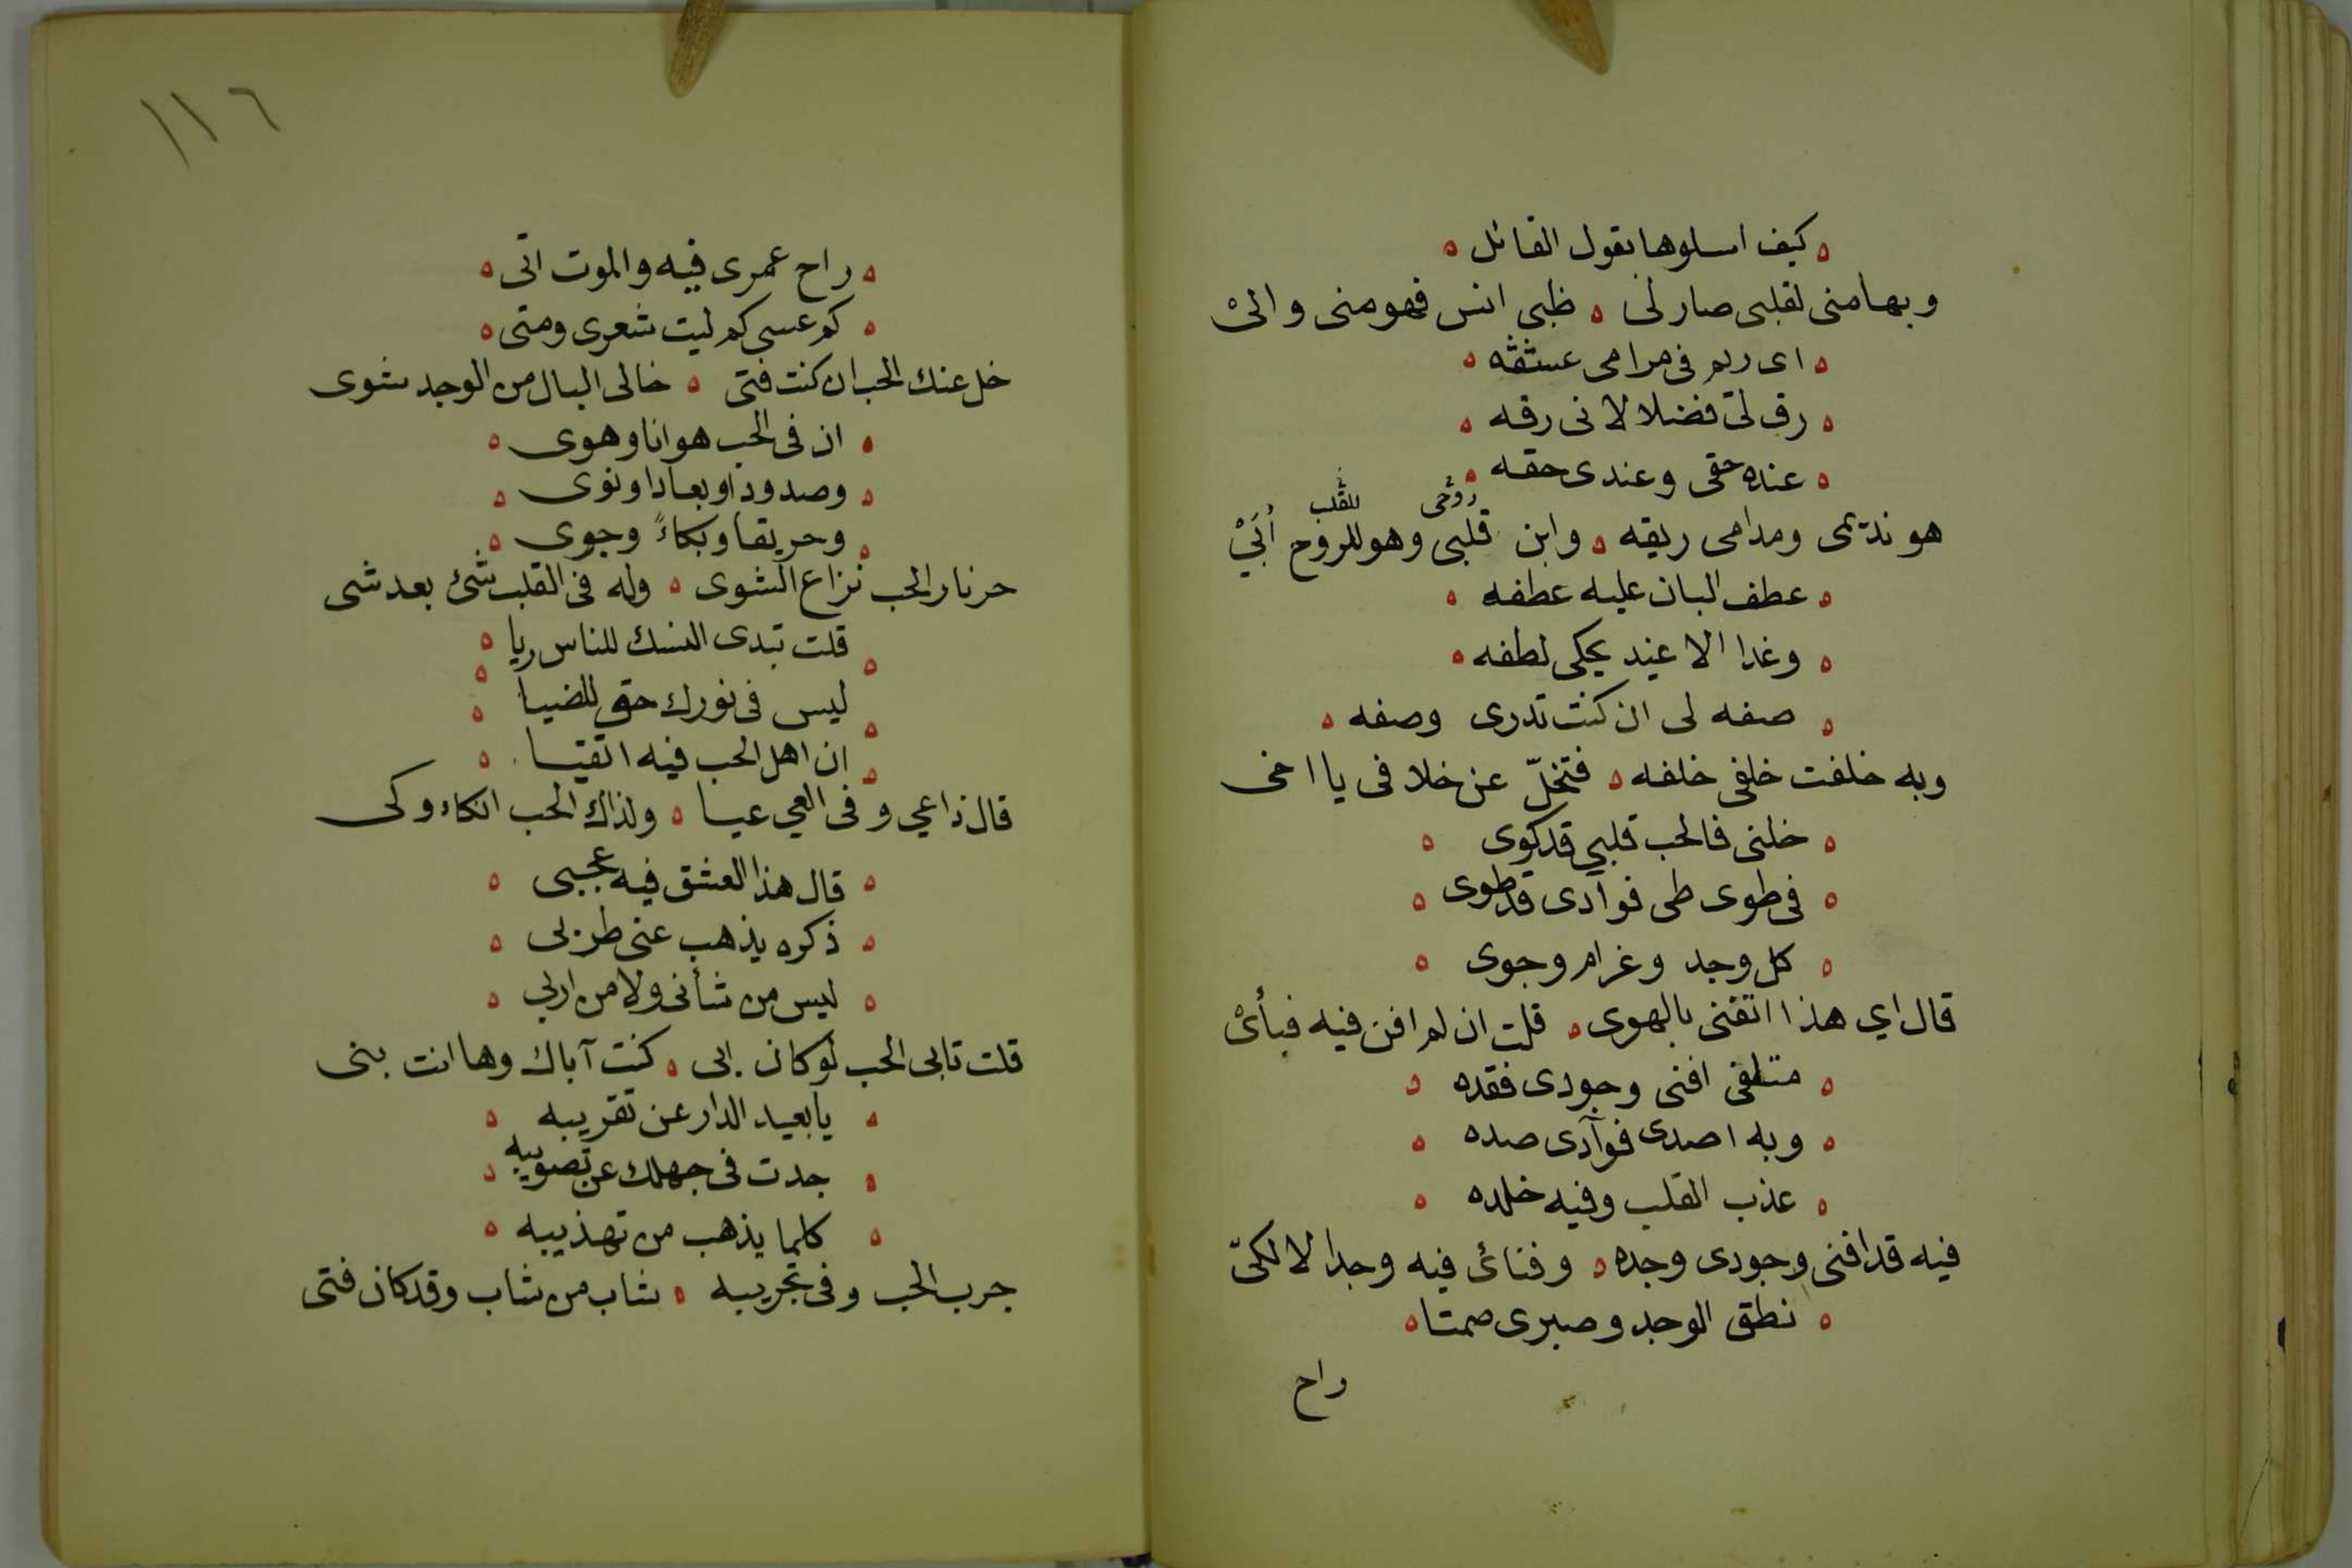 كيف اسلوها بقول القائل
وبها منى لقلبى صار لى ه ظبى انس فهو منى والىْ
اى ريم فى مرامى عشقه
رق لىّ فضلا لانى رقه
عنده حقى وعندى حقه
روحى للقلب
هو نديمى ومدامى ريقه ه وابن قلبى وهو للروح أُبَىْ
عطف البان عليه عطفه
وغدا الاغيد يحكى لطفه
صفه لى ان كنت تدرى وصفه
وبه خلفت خلفى خلفه ه فتخلّ عن خلافى يا اخى
خلنى فالحب قلبي قد كوى
فى طوى طى فوآدى قد طوى
كل وجد وغرام وجوى
قال اي هذا اتقنى بالهوى ه قلت ان لم افن فيه فبأىْ
متلفى افنى وجودى فقده
وبه اصدى فوآدى صده
عذب القلب وفيه خلده
فيه قد افنى وجودى وجده ه وفنائ فيه وجدا لا لكىّ
نطق الوجد وصبرى صمتا
راح
١١٦
راح عمرى فيه والموت اتى
كم عسى كم ليت شعرى ومتى
خل عنك الحب ان كنت فتى ه خالى البال من الوجد شوى
ان فى الحب هوانا وهوى
وصدودا وبعادا ونوى
وحريقا وبكاءً وجوى
حر نار الحب نزاع الشوى ه وله فى القلب شئ بعد شى
قلت تبدى النسك للناس ريا
ليس فى نورك حق للضيا
ان اهل الحب فيه اتقيا
قال ذا عي وفى العي عيا ه ولذاك الحب انكاء وكى
قال هذا العشق فيه عجبى
ذكره يذهب عنى طربى
ليس من شأنى ولا من اربي
قلت تابى الحب لو كان ابى ه كنت آباك وها انت بنى
يا بعيد الدار عن تقريبه
جدت فى جهلك عن تصويبه
كلما يذهب من تهذيبه
جرب الحب وفى تجريبه ه شاب من شاب وقد كان فتى